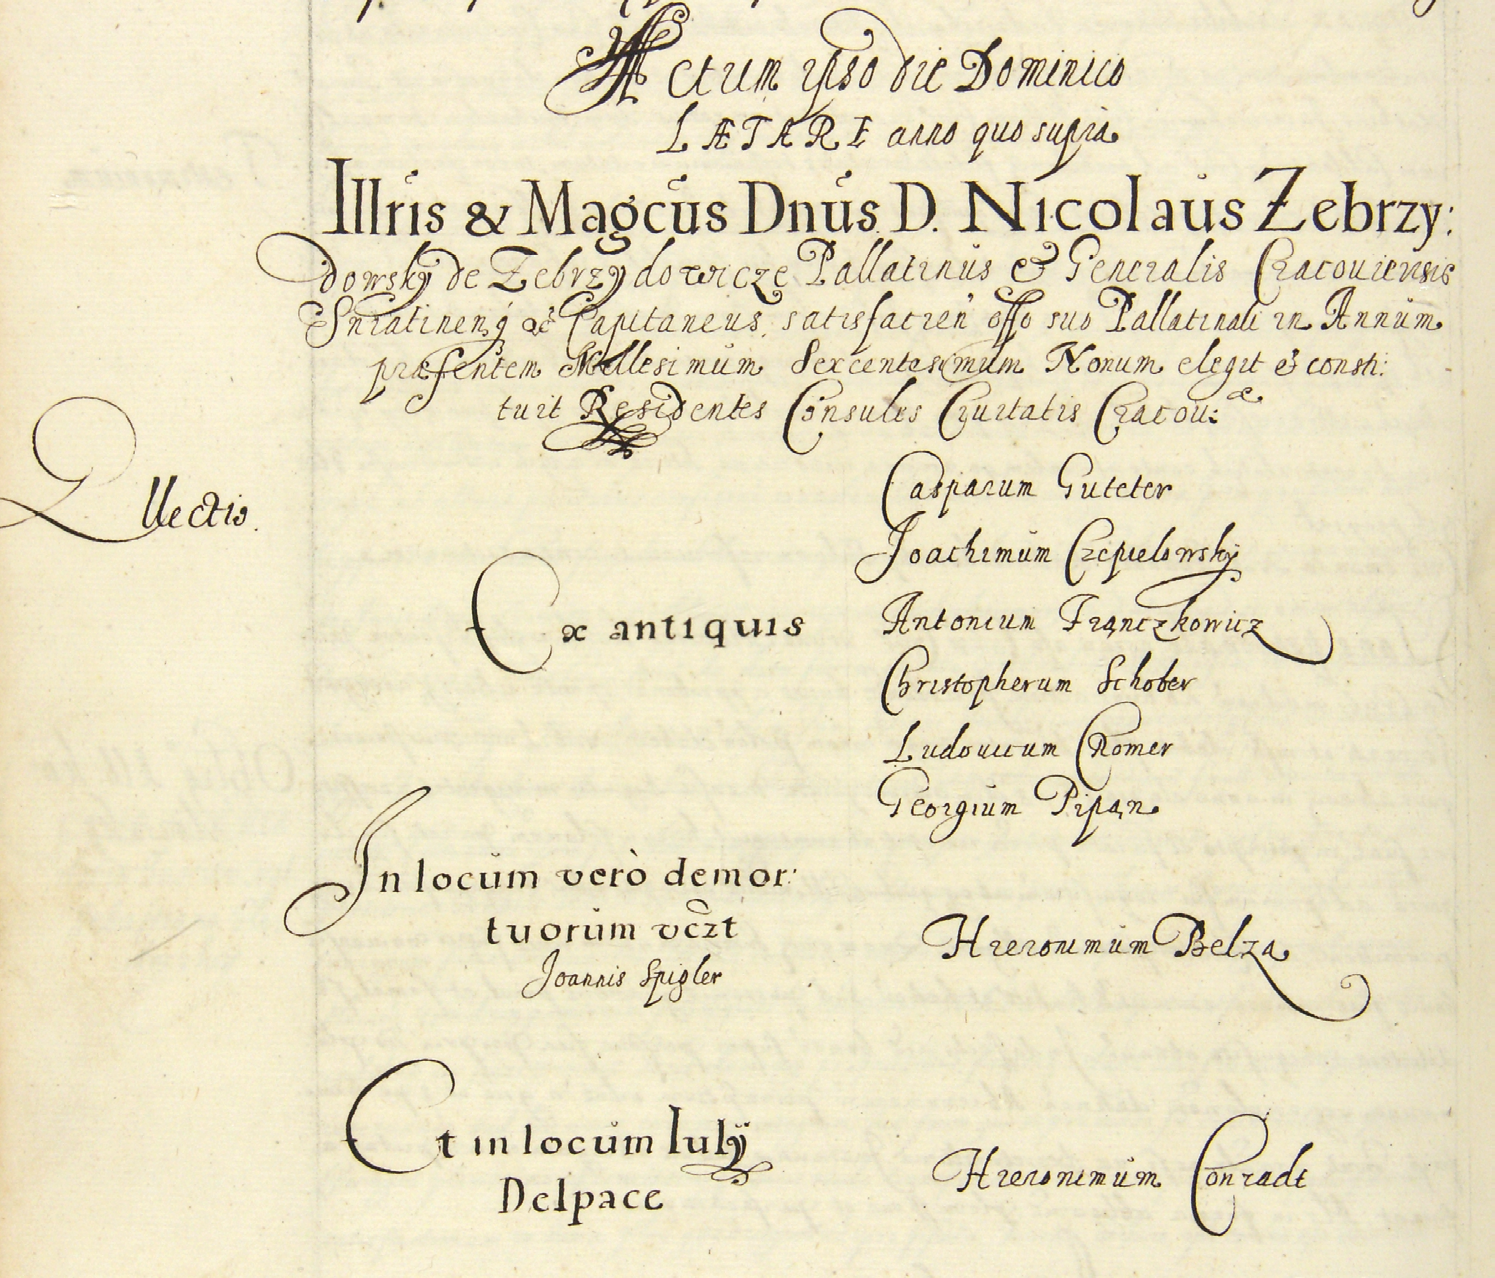 Actum ipso die Dominico
LÆTARE anno quo supra
Illris & Magcus Dnus D. Nicolaus Zebrzy:
dowsky de Zebrzydowicze Pallatinus & Generalis Cracouiensis
Sniatinenq3 &c Capitaneus, satisfacien offo suo Pallatinali in Annum
præsentem Millesimum Sexcentesimum Nonum elegit & consti:
tuit Residentes Consules Ciuitatis Cracou: æ
Ellectio.
Casparum Guteter
Joachimum Czepielowsky
Ex antiquis
Antonium Franczkowicz
Christopherum Schober
Ludouicum Kromer
Georgium Pipan
In locum verò demor:
tuorum vczt
Joannis Spigler
Hieronimum Belza
Et in locum Iulÿ
Delpace
Hieronimum Conradt